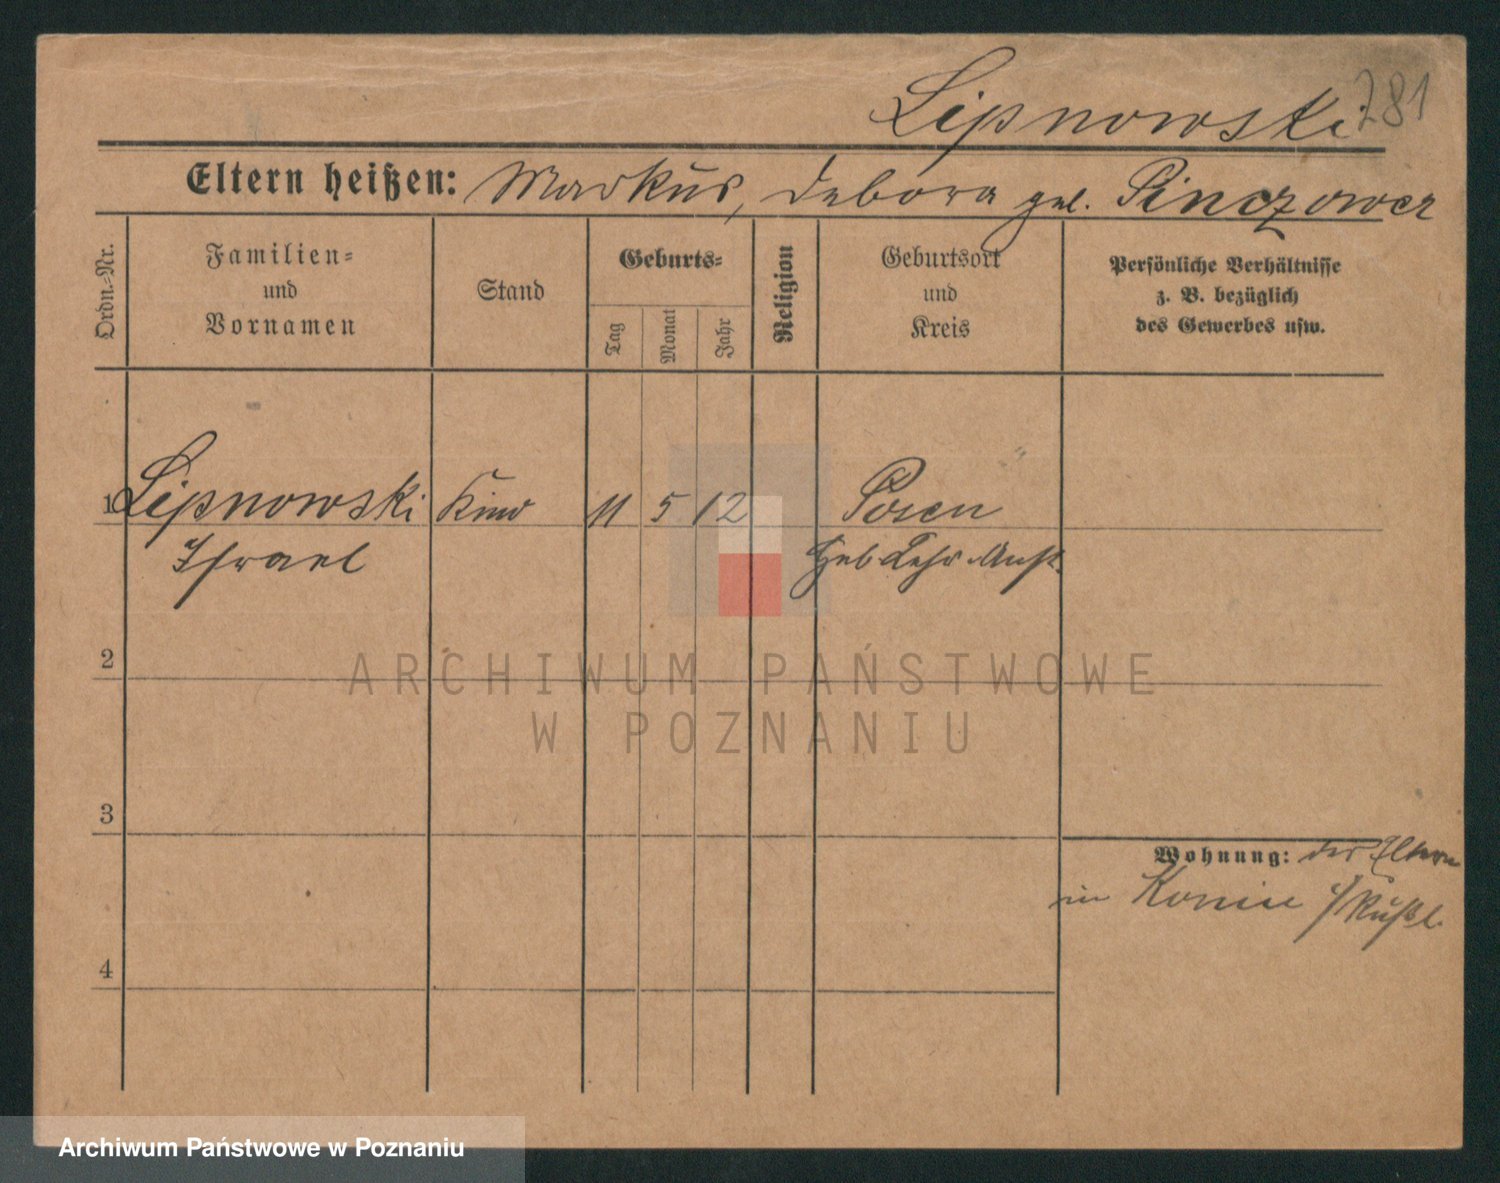 Lipnowski 281
Eltern heißen: Markus, Debora geb. Pinczower
Ordn.-Nr.
Familien=
und
Vornamen
Stand
Geburts=
Tag
Monat
Jahr
Religion
Geburtsort
und
Kreis
Persönliche Verhältnisse
z. B. bezüglich
des Gewerbes usw.
1 Lipnowski Kind 11 5 12 Posen
Israel Heb. Lehr. Anst.
ARCHIWUM PAŃSTWOWE
W POZNANIU
2
3
Wohnung: der Eltern
in Konin i/Rußl.
4
Archiwum Państwowe w Poznaniu